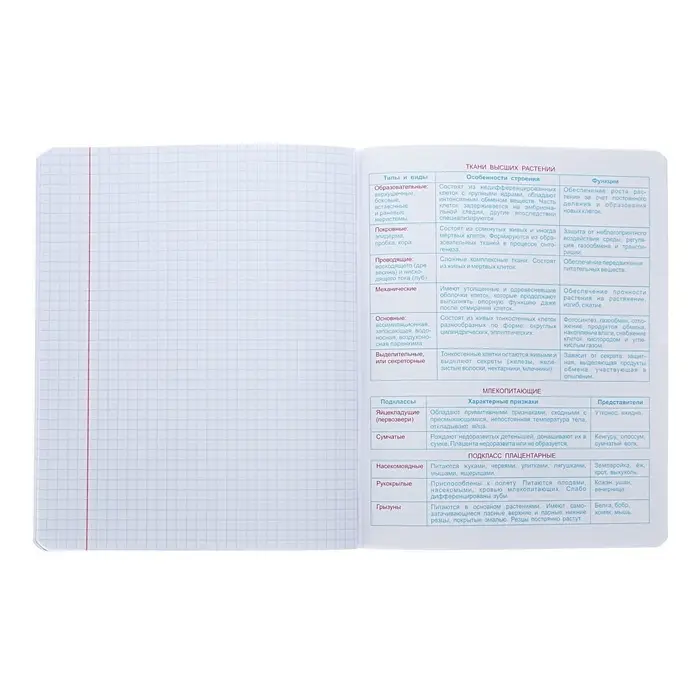 ТКАНИ ВЫСШИХ РАСТЕНИЙ
Типы и виды Особенности строения Функции
Образовательные: верхушечные, боковые, вставочные и раневые меристемы
Состоят из недифференцированных клеток с крупными ядрами, обладают интенсивным обменом веществ. Часть клеток задерживается на эмбриональной стадии, другие впоследствии специализируются
Обеспечение роста растения за счет постоянного деления и образования новых клеток.
Покровные: эпидерма, пробка, кора
Состоят из сомкнутых живых и иногда мертвых клеток. Формируются из образовательных тканей в процессе
Защита от неблагоприятного воздействия среды, регуляция газообмена и транспирации.
Проводящие:
Сложные комплексные ткани. Состоят из живых и мертвых клеток.
Обеспечение передвижения питательных веществ.
Механические
Имеют утолщенные и одревесневшие оболочки клеток, которые продолжают выполнять опорную функцию даже после отмирания клеток.
Обеспечения прочности растения на растяжение, изгиб, сжатие.
Основные: ассимиляционная, запасающая, водоносная, воздухоносная паренхима
Состоят из живых тонкостенных клеток разнообразных по форме: округлых цилиндрических, эллиптических.
Фотосинтез, газообмен, отложение продуктов обмена, накопление влаги, снабжение клеток кислородом и углекислым газом.
Выделительные, или секреторные
Тонкостенные клетки
выделяют секреты (железы, железистые волоски, нектарники,
Зависит от секрета: защитная, выделяющая продукты обмена участвующая в опылении.
МЛЕКОПИТАЮЩИЕ
Подклассы Характерные признаки Представители
Яйцекладущие (первозвери)
Обладают примитивными признаками, сходными с пресмыкающимися, непостоянная температура тела, откладывают яйца.
Утконос, ехидна.
Сумчатые
Рождают недоразвитых детенышей, донашивают их в сумке. Плацента недоразвита или не образуется.
Кенгуру, опоссум, сумчатый волк.
ПОДКЛАСС ПЛАЦЕНТАРНЫЕ
Насекомоядные
Питаются жуками, червями, улитками, лягушками, мышами, ящерицами.
Землеройка, еж, крот, выхухоль.
Рукокрылые
Приспособлены к полету. Питаются плодами, насекомыми, кровью млекопитающих. Слабо дифференцированы зубы.
Кожан, ушан, вечерница.
Грызуны
Питаются в основном растениями. Имеют самозатачивающиеся парные верхние и парные нижние резцы, покрытые эмалью. Резцы постоянно растут.
Белка, бобр, хомяк, мышь.